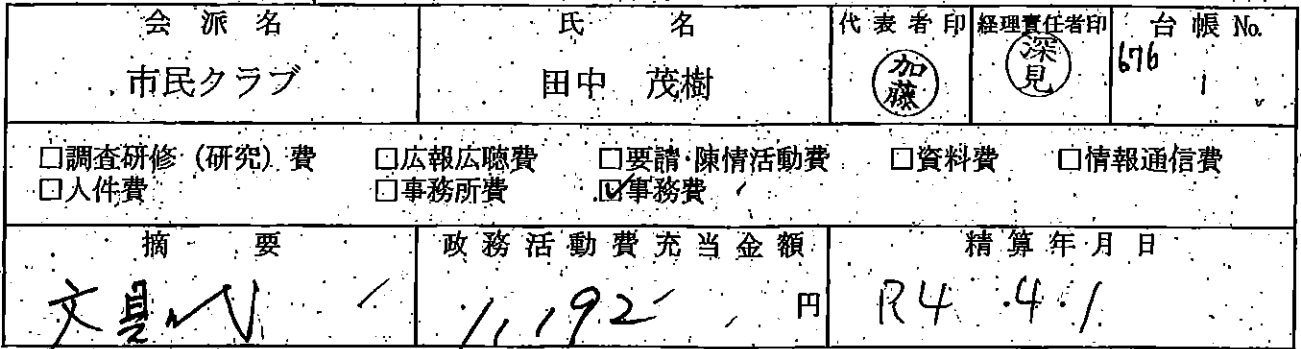 会派名 氏名 代表者印 経理責任者印 台帳No.
市民クラブ 田中 茂樹 加藤 深見 676 1
□調査研修(研究)費 □広報広聴費 □要請・陳情活動費 □資料費 □情報通信費
□人件費 □事務所費 ☑事務費
摘要 政務活動費充当金額 精算年月日
文具 1,192 円 R4.4.1